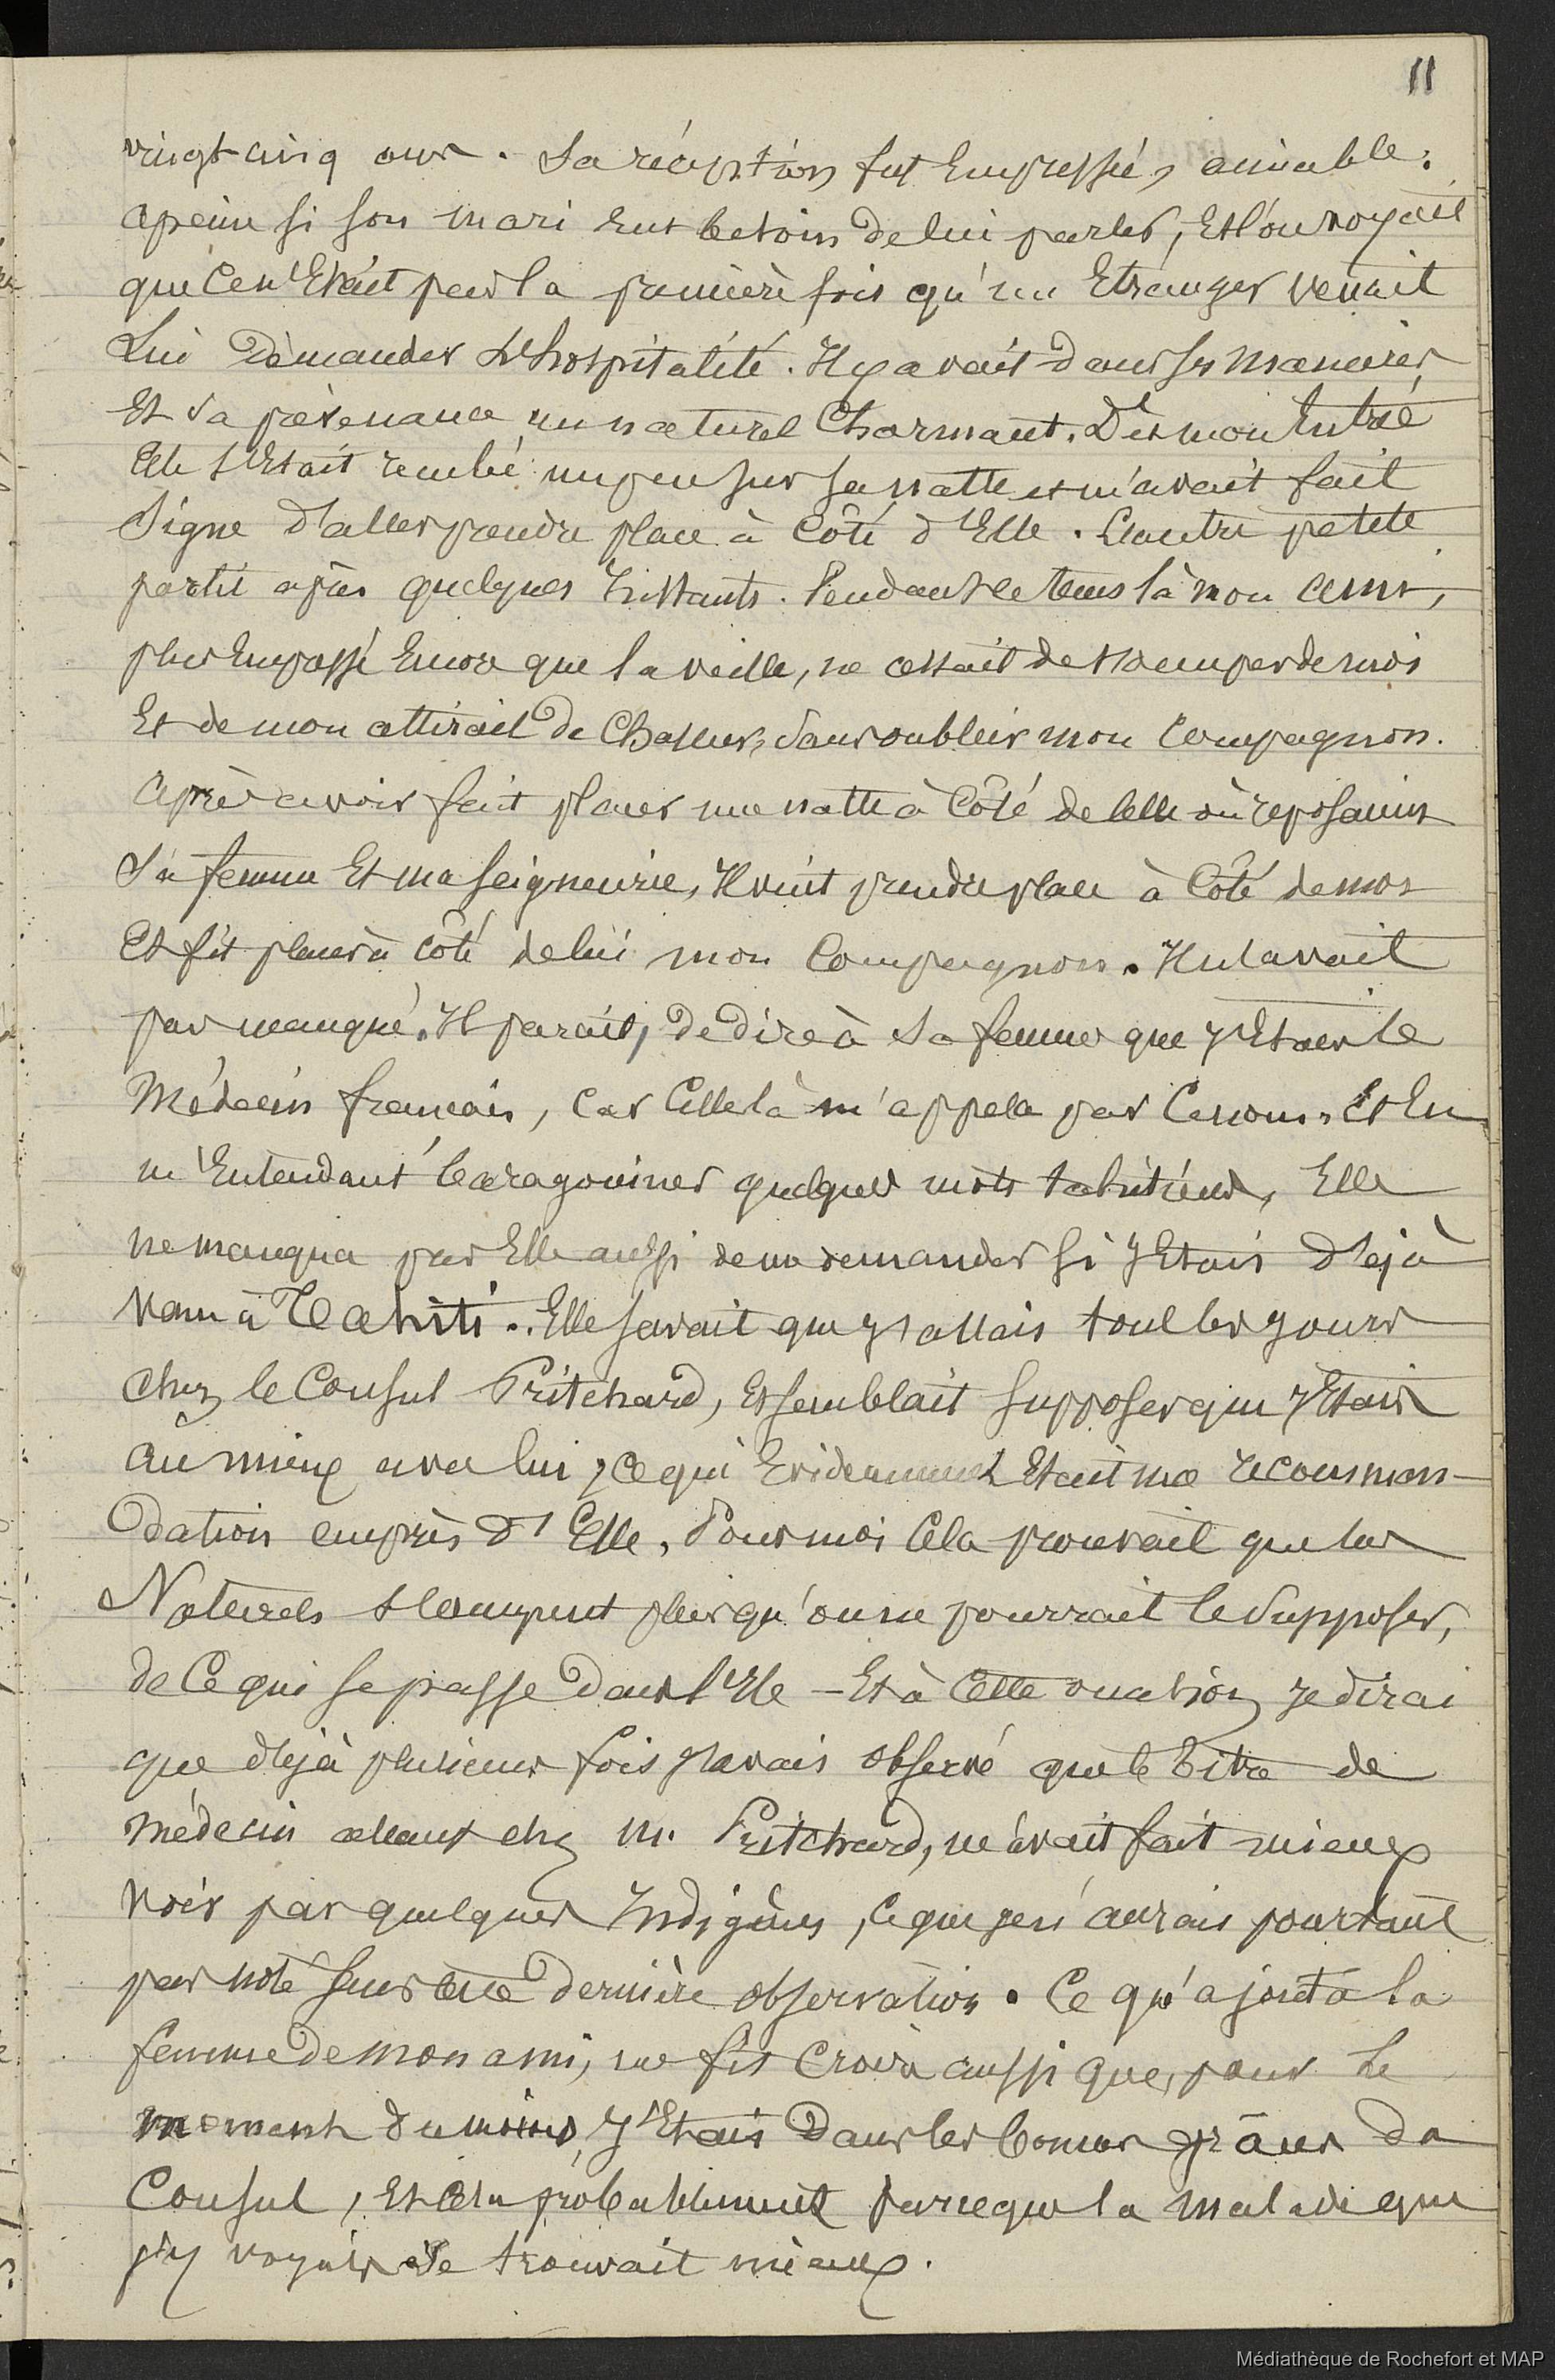 11
vingt cinq ans. Sa réception fut Empressée, aimable:
apeine si son mari eut besoin de lui parler, Et l'on voyait
que ce n'Etait pas la première fois qu'un Etranger venait
Lui demander L'hospitalité. Il y avait dans ses manières
Et sa prévenance un naturel Charmant. Dès mon Entrée
Elle s'Etait reculée un peu sur sa natte et m'avait fait
Signe d'aller prendre place à Côté d'Elle. L'autre petite
partit après quelques Instants. Pendant ce tems là mon ami,
plus Empressé Encore que la veille, ne cessait de s'occuper de moi
Et de mon attirail de Chasseur, sans oublier mon Compagnon.
Après avoir fait placer une natte à Côté de Celle où reposaient
Sa femme Et ma seigneurie, Il vint prendre place à Côté de moi
Et fit placer à Côté de lui mon Compagnon. Il n'avait
pas manqué, Il parait, de dire à sa femme que j'Etais le
Médecin français, Car Celle là m'appela par Ce nom. Et En
m'Entendant baragouiner quelques mots tahitiens, Elle
ne manqua pas Elle aussi de me demander si j'Etais déjà
venu à Tahiti. Elle savait que j'allais tous les jours
chez le Consul Pritchard, Et semblait supposer que j'Etais
au mieux avec lui, ce qui Evidemment Etait une recomman-
dation auprès d'Elle. Pour moi Cela prouvait que les
Naturels s'occupent plus qu'on ne pourrait le supposer,
de Ce qui se passe dans l'Ile – Et à Cette occasion je dirai
que déjà plusieurs fois j'avais observé que le titre de
médecin allant chez M. Pritchard, m'avait fait mieux
voir par quelques Indigènes, Ce que je n'aurais pourtant
pas noté sans cette dernière observation. Ce qu'ajouta la
femme de mon ami, me fit Croire aussi que, pour le
moment du moins, j'Etais dans les bonnes grâces du
Consul, Et Cela probablement parceque la malade que
j'y voyais se trouvait mieux.
Médiathèque de Rochefort et MAP